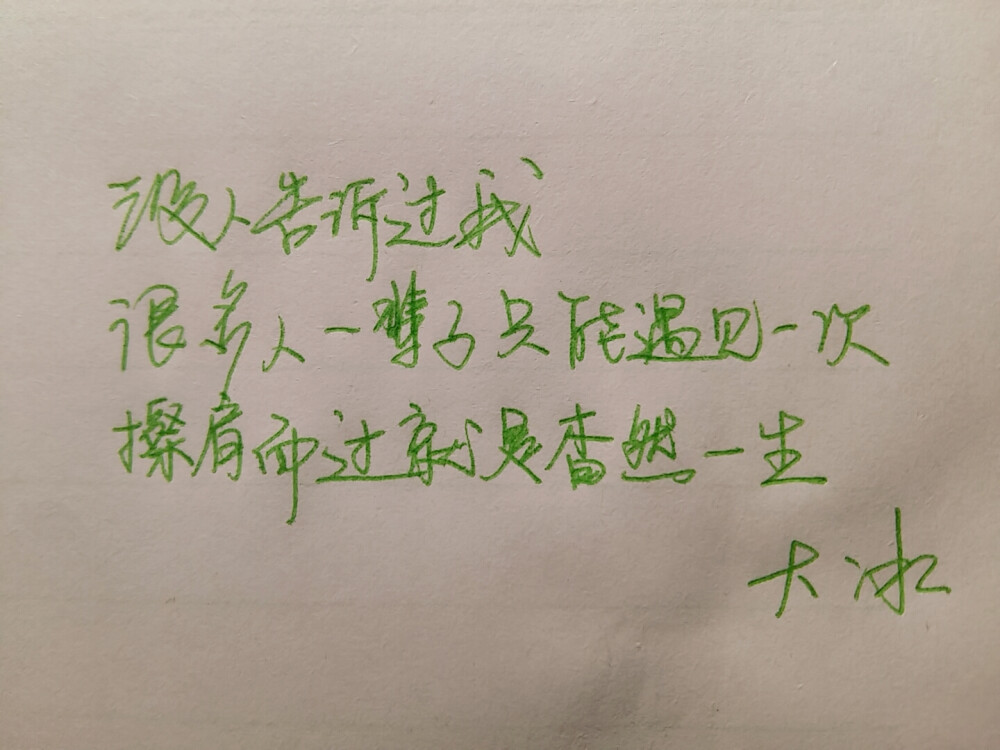 没人告诉过我
很多人一辈子只能遇见一次
擦肩而过就是杳然一生
大冰